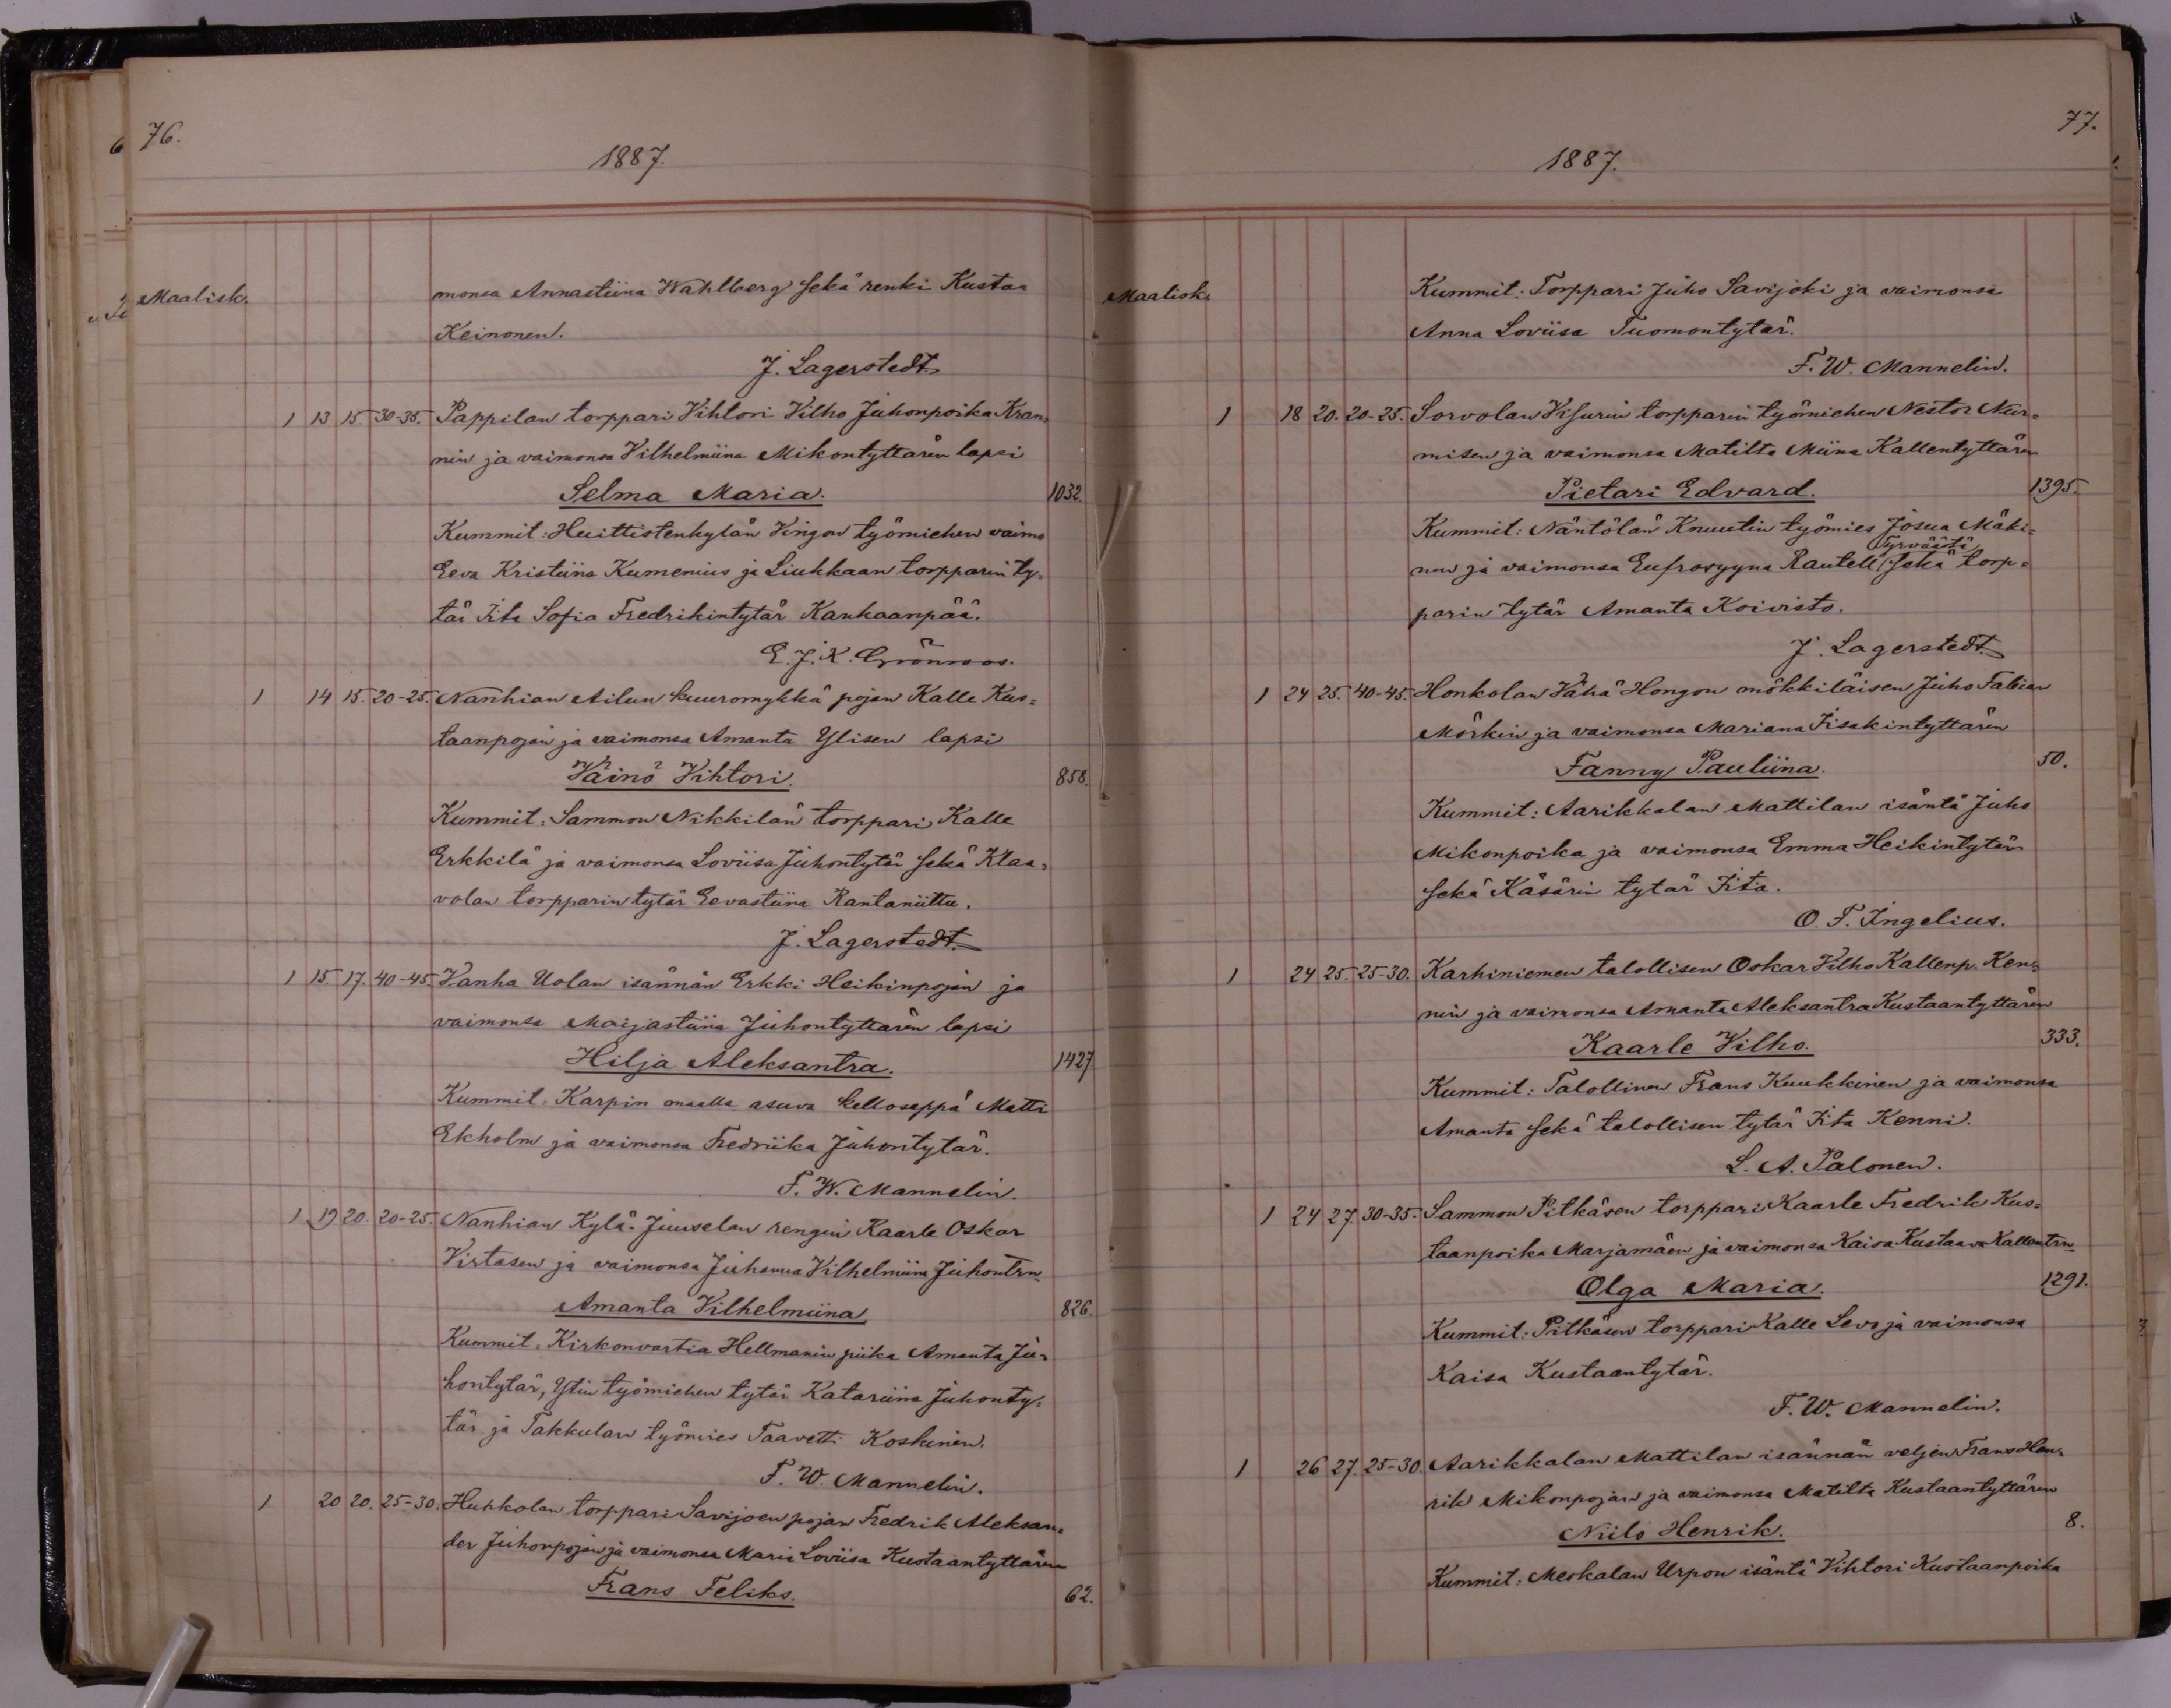 76.
1887.
Maalisk.
monsa Annastiina Wahlberg sekä renki Kustaa
Keinonen.
J. Lagerstedt.
1 13 15. 30-35. Pappilan torppari Vihtori Vilho Juhonpoika Kran-
nin ja vaimonsa Vilhelmiina Mikontyttären lapsi
Selma Maria. 1032.
Kummit: Huittistenkylän Vingon työmiehen vaimo
Eeva Kristiina Kumenius ja Liukkaan torpparin ty-
tär Iita Sofia Fredrikintytär Kankaanpää.
E. J. K. Grönroos.
1 14 15. 20-25. Nanhian Ailun kuuromykkä pojan Kalle Kus-
taanpojan ja vaimonsa Amanta Ylisen lapsi
Väinö Vihtori. 858.
Kummit: Sammon Nikkilän torppari Kalle
Erkkilä ja vaimonsa Loviisa Juhontytär sekä Klaa-
volan torpparin tytär Eevastiina Rantaniittu.
J. Lagerstedt.
1 15. 17. 40-45. Vanha Uolan isännän Erkki Heikinpojan ja
vaimonsa Maijastiina Juhontyttären lapsi
Hilja Aleksantra. 1427
Kummit: Karpin maalla asuva kelloseppä Matti
Ekholm ja vaimonsa Fredriika Juhontytär.
F. W. Mannelin.
1 19 20. 20-25. Nanhian Kylä-Juuselan rengin Kaarle Oskar
Virtasen ja vaimonsa Juhanna Vilhelmiina Juhontrn
Amanta Vilhelmiina 826.
Kummit: Kirkonvartia Hellmanin piika Amanta Ju-
hontytär, Ytin työmiehen tytär Katariina Juhonty-
tär ja Takkulan työmies Taavetti Koskinen.
F. W. Mannelin.
1 20 20. 25-30. Huhkolan torppari Savijoen pojan Fredrik Aleksan-
der Juhonpojan ja vaimonsa Maria Loviisa Kustaantyttären
Frans Feliks. 62.
77.
1887.
Maalisk.
Kummit: Torppari Juho Savijoki ja vaimonsa
Anna Loviisa Tuomontytär.
F. W. Mannelin.
1 18 20. 20-25. Sorvolan Visurin torpparin työmiehen Nestor Nur-
misen ja vaimonsa Matilta Miina Kallentyttären
Pietari Edvard. 1395.
Kummit: Näntölän Knuutin työmies Josua Mäki-
Tyrväästä
nen ja vaimonsa Eufrosyyna Rautell sekä torp-
parin tytär Amanta Koivisto.
J. Lagerstedt.
1 24 25. 40-45. Honkolan Vähä Hongon mökkiläisen Juho Fabian
Mörkin ja vaimonsa Mariana Iisakintyttären
Fanny Pauliina. 50.
Kummit: Aarikkalan Mattilan isäntä Juho
Mikonpoika ja vaimonsa Emma Heikintytär
sekä Käsärin tytär Iita.
O. F. Ingelius.
1 24 25. 25-30. Karhiniemen talollisen Oskar Vilho Kallenp. Ken-
nin ja vaimonsa Amanta Aleksantra Kustaantyttären
Kaarle Vilho. 333.
Kummit: Talollinen Frans Kuukkinen ja vaimonsa
Amanta sekä talollisen tytär Iita Kenni.
L. A. Palonen.
1 24 27. 30-35. Sammon Pitkäsen torppari Kaarle Fredrik Kus-
taanpoika Marjamäen ja vaimonsa Kaisa Kustaava Kallentrn
Olga Maria. 1291.
Kummit: Pitkäsen torppari Kalle Levo ja vaimonsa
Kaisa Kustaantytär.
F. W. Mannelin.
1 26 27. 25-30. Aarikkalan Mattilan isännän veljen Frans Hen-
rik Mikonpojan ja vaimonsa Matilta Kustaantyttären
Niilo Henrik. 8.
Kummit: Meskalan Urpon isäntä Vihtori Kustaanpoika